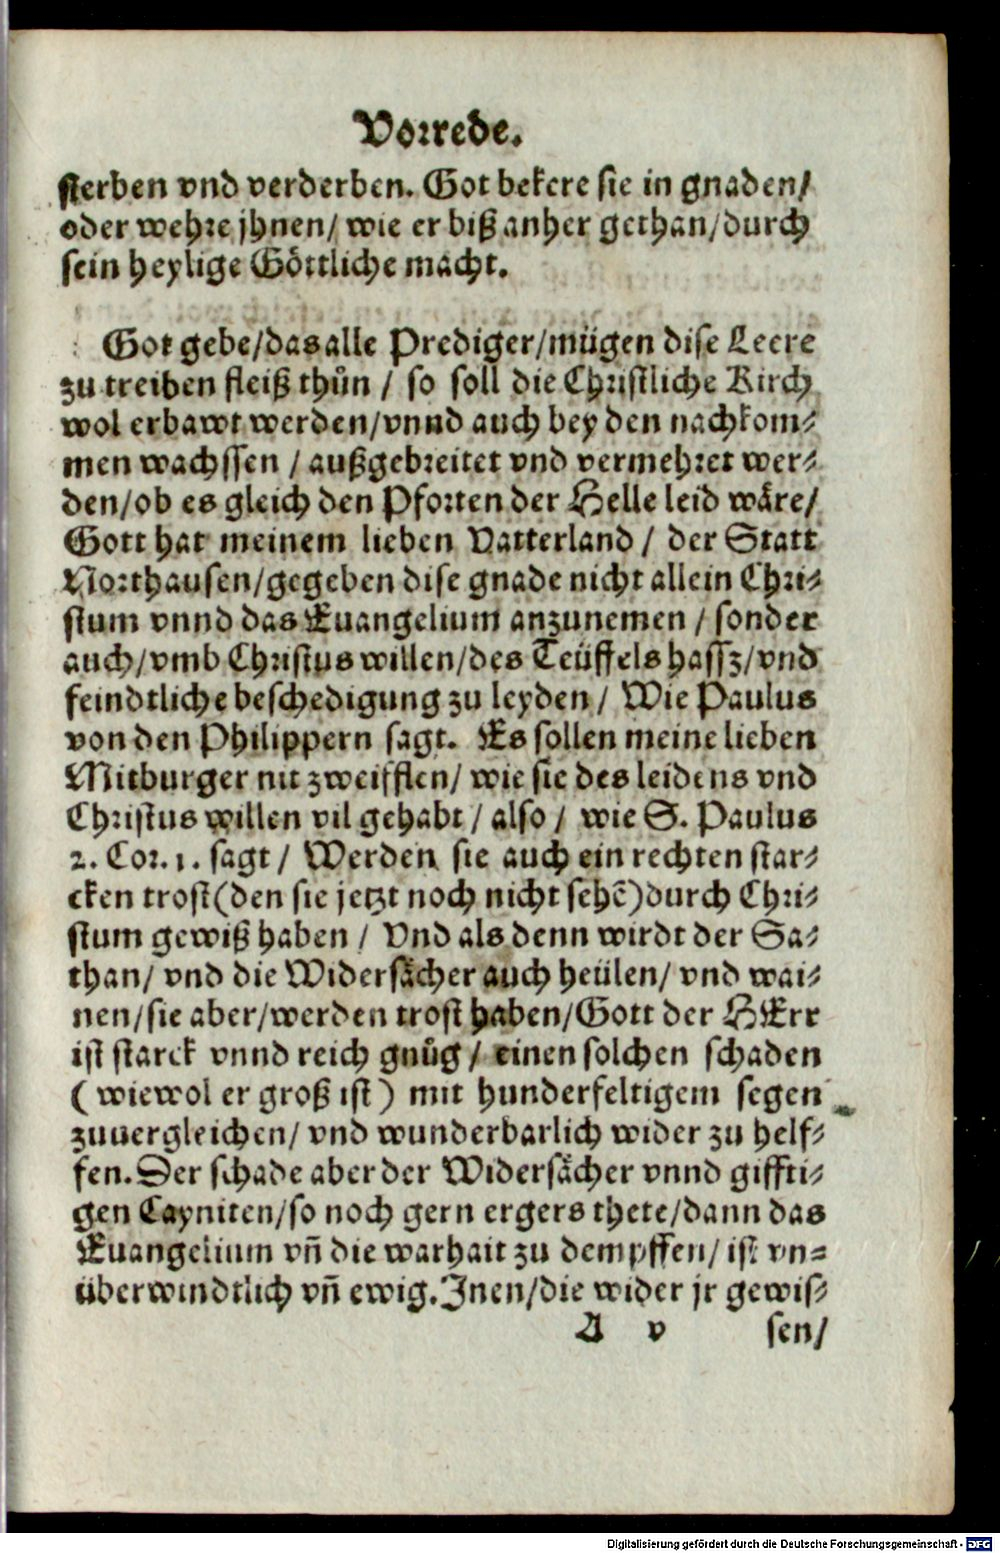 Vorrede.
sterben vnd verderben. Got bekere sie in gnaden/
oder wehre jhnen/ wie er biß anher gethan/durch
sein heylige Göttliche macht.
Got gebe/das alle Prediger/mügen dise Leere
zu treiben fleiß thůn / so soll die Christliche Kirch
wol erbawt werden/vnnd auch bey den nachkom⸗
men wachssen / außgebreitet vnd vermehret wer⸗
den/ob es gleich den Pforten der Helle leid wäre/
Gott hat meinem lieben Vatterland / der Statt
Northausen/gegeben dise gnade nicht allein Chri⸗
stum vnnd das Euangelium anzunemen / sonder
auch/vmb Christus willen/des Teüffels hassz/vnd
feindtliche beschedigung zu leyden / Wie Paulus
von den Philippern sagt. Es sollen meine lieben
Mitburger nit zweifflen/ wie sie des leidens vnd
Christus willen vil gehabt / also / wie S. Paulus
2. Cor. 1. sagt / Werden sie auch ein rechten star⸗
cken trost(den sie jetzt noch nicht sehē)durch Chri⸗
stum gewiß haben / Vnd als denn wirdt der Sa⸗
than/ vnd die Widersächer auch heülen/ vnd wai⸗
nen/sie aber/werden trost haben/Gott der HErr
ist starck vnnd reich gnůg / einen solchen schaden
( wiewol er groß ist ) mit hunderfeltigem segen
zuuergleichen/ vnd wunderbarlich wider zu helf⸗
fen. Der schade aber der Widersächer vnnd giffti⸗
gen Cayniten/so noch gern ergers thete/dann das
Euangelium vñ die warhait zu dempffen/ ist vn⸗
überwindtlich vñ ewig. Jnen/die wider jr gewis⸗
A v sen/
Digitalisierung gefördert durch die Deutsche Forschungsgemeinschaft - DFG